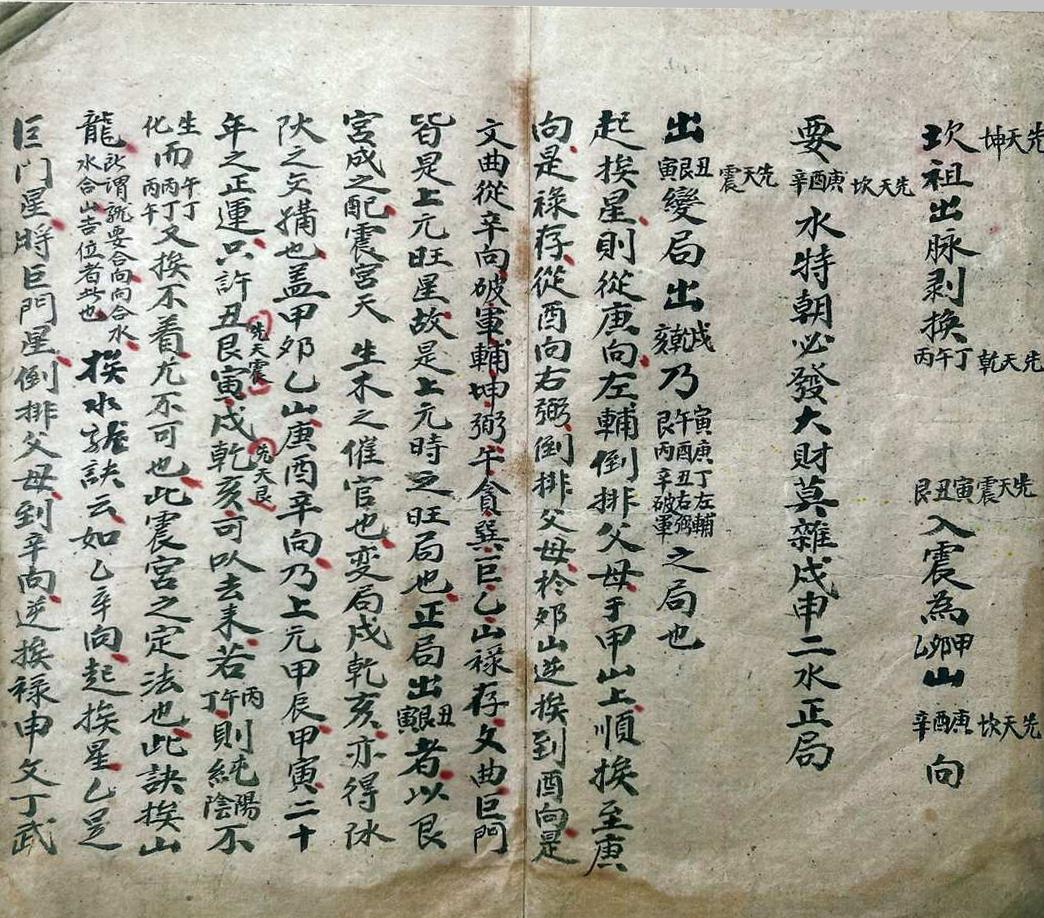 坎先天坤祖出脉剥换丙午丁先天乾艮丑寅先天震入震為甲卯乙山庚酉辛先天坎向
要庚酉辛先天坎水特朝必發大財莫雜戌申二水正局
出丑艮寅先天震變局出戌乾亥乃寅庚丁左輔午酉丑右弼艮丙辛破軍之局也
起挨星則從庚向左輔倒排父母于甲山上順挨至庚
向是禄存從酉向右弼倒排父母於卯山逆挨到酉向是
文曲從辛向破軍輔坤弼午貪巽巨乙山禄存文曲巨門
皆是上元旺星故是上元時之旺局也正局出丑艮寅者以艮
宮成之配震宮天生木之催官也变局戌乾亥亦得
之交媾也盖甲卯乙山庚酉辛向乃上元甲辰甲寅二十
年之正運只許丑艮寅先天震戌乾亥先天艮可以去来若丙午丁則純陽陰不
生化而午丁丙丁丙午又挨不着尤不可也此震宮之定法也此訣挨山
龍所謂龍要合向向合水水合山吉位者此也挨水龍訣云如乙辛向起挨星乙是
巨門星將巨門星倒排父母到辛向逆挨禄申文丁武